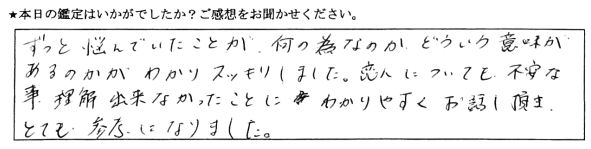 ★本日の鑑定はいかがでしたか？ご感想をお聞かせください。
ずっと悩んでいたことが、何の為なのか、どういう意味が
あるのかが わかりスッキリしました。恋人についても、不安な
事、理解出来なかったことに わかりやすく お話し頂き、
とても 参考になりました。